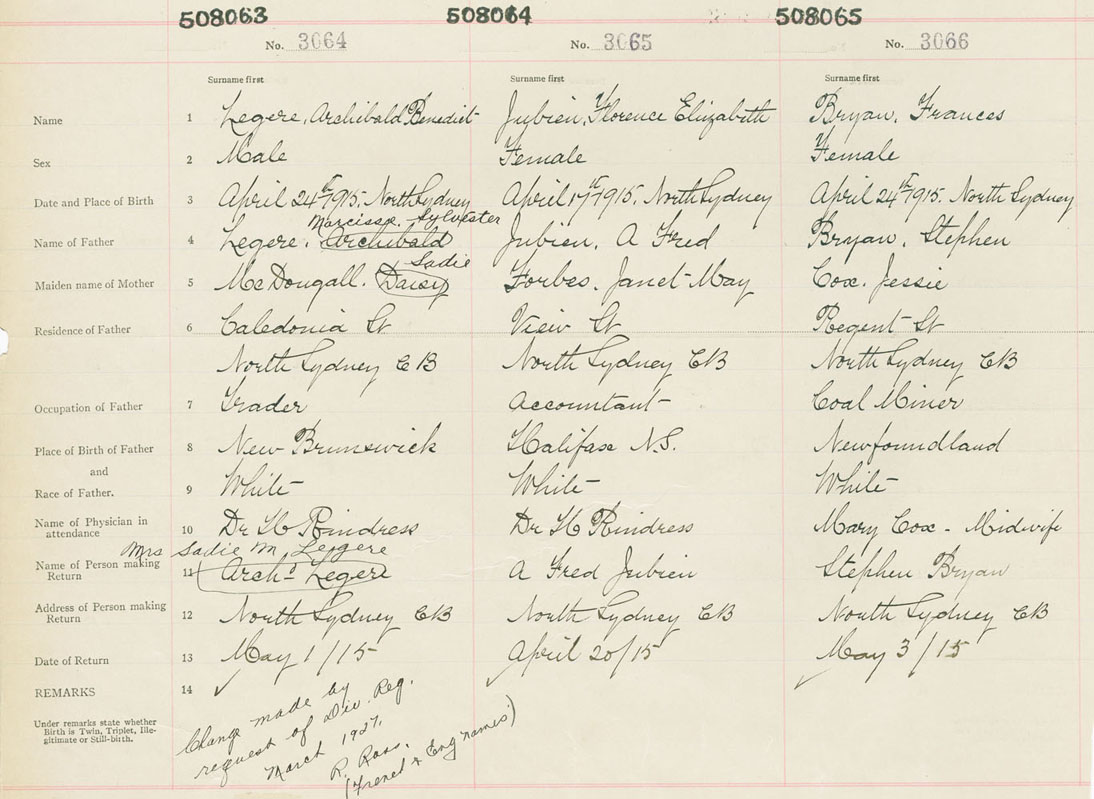 508063 508064 508065
No. 3064 No. 3065 No. 3066
Surname first Surname first Surname first
Name 1 Legere, Archibald Benedict Jubien, Florence Elizabeth Bryan, Frances
Sex 2 Male Female Female
Date and Place of Birth 3 April 24th 1915. North Sydney April 17th 1915. North Sydney April 24th 1915. North Sydney
Narcisse Sylvester
Name of Father 4 Legere, Archibald Jubien, A Fred Bryan, Stephen
Sadie
Maiden name of Mother 5 McDougall. Daisy Forbes, Janet May Cox, Jessie
Residence of Father 6 Caledonia St View St Regent St
North Sydney CB North Sydney CB North Sydney CB
Occupation of Father 7 Trader Accountant Coal Miner
Place of Birth of Father 8 New Brunswick Halifax N.S. Newfoundland
and
Race of Father. 9 White White White
Name of Physician in attendance 10 Dr H Rindress Dr H Rindress Mary Cox - Midwife
Mrs Sadie M. Legere
Name of Person making Return 11 Archd Legere A Fred Jubien Stephen Bryan
Address of Person making Return 12 North Sydney CB North Sydney CB North Sydney CB
Date of Return 13 May 1/15 April 20/15 May 3/15
REMARKS 14
Under remarks state whether
Birth is Twin, Triplet, Ille-
gitimate or Still-birth.
Change made by
request of Div. Reg.
March 1927.
R. Ross.
(French & Eng names)